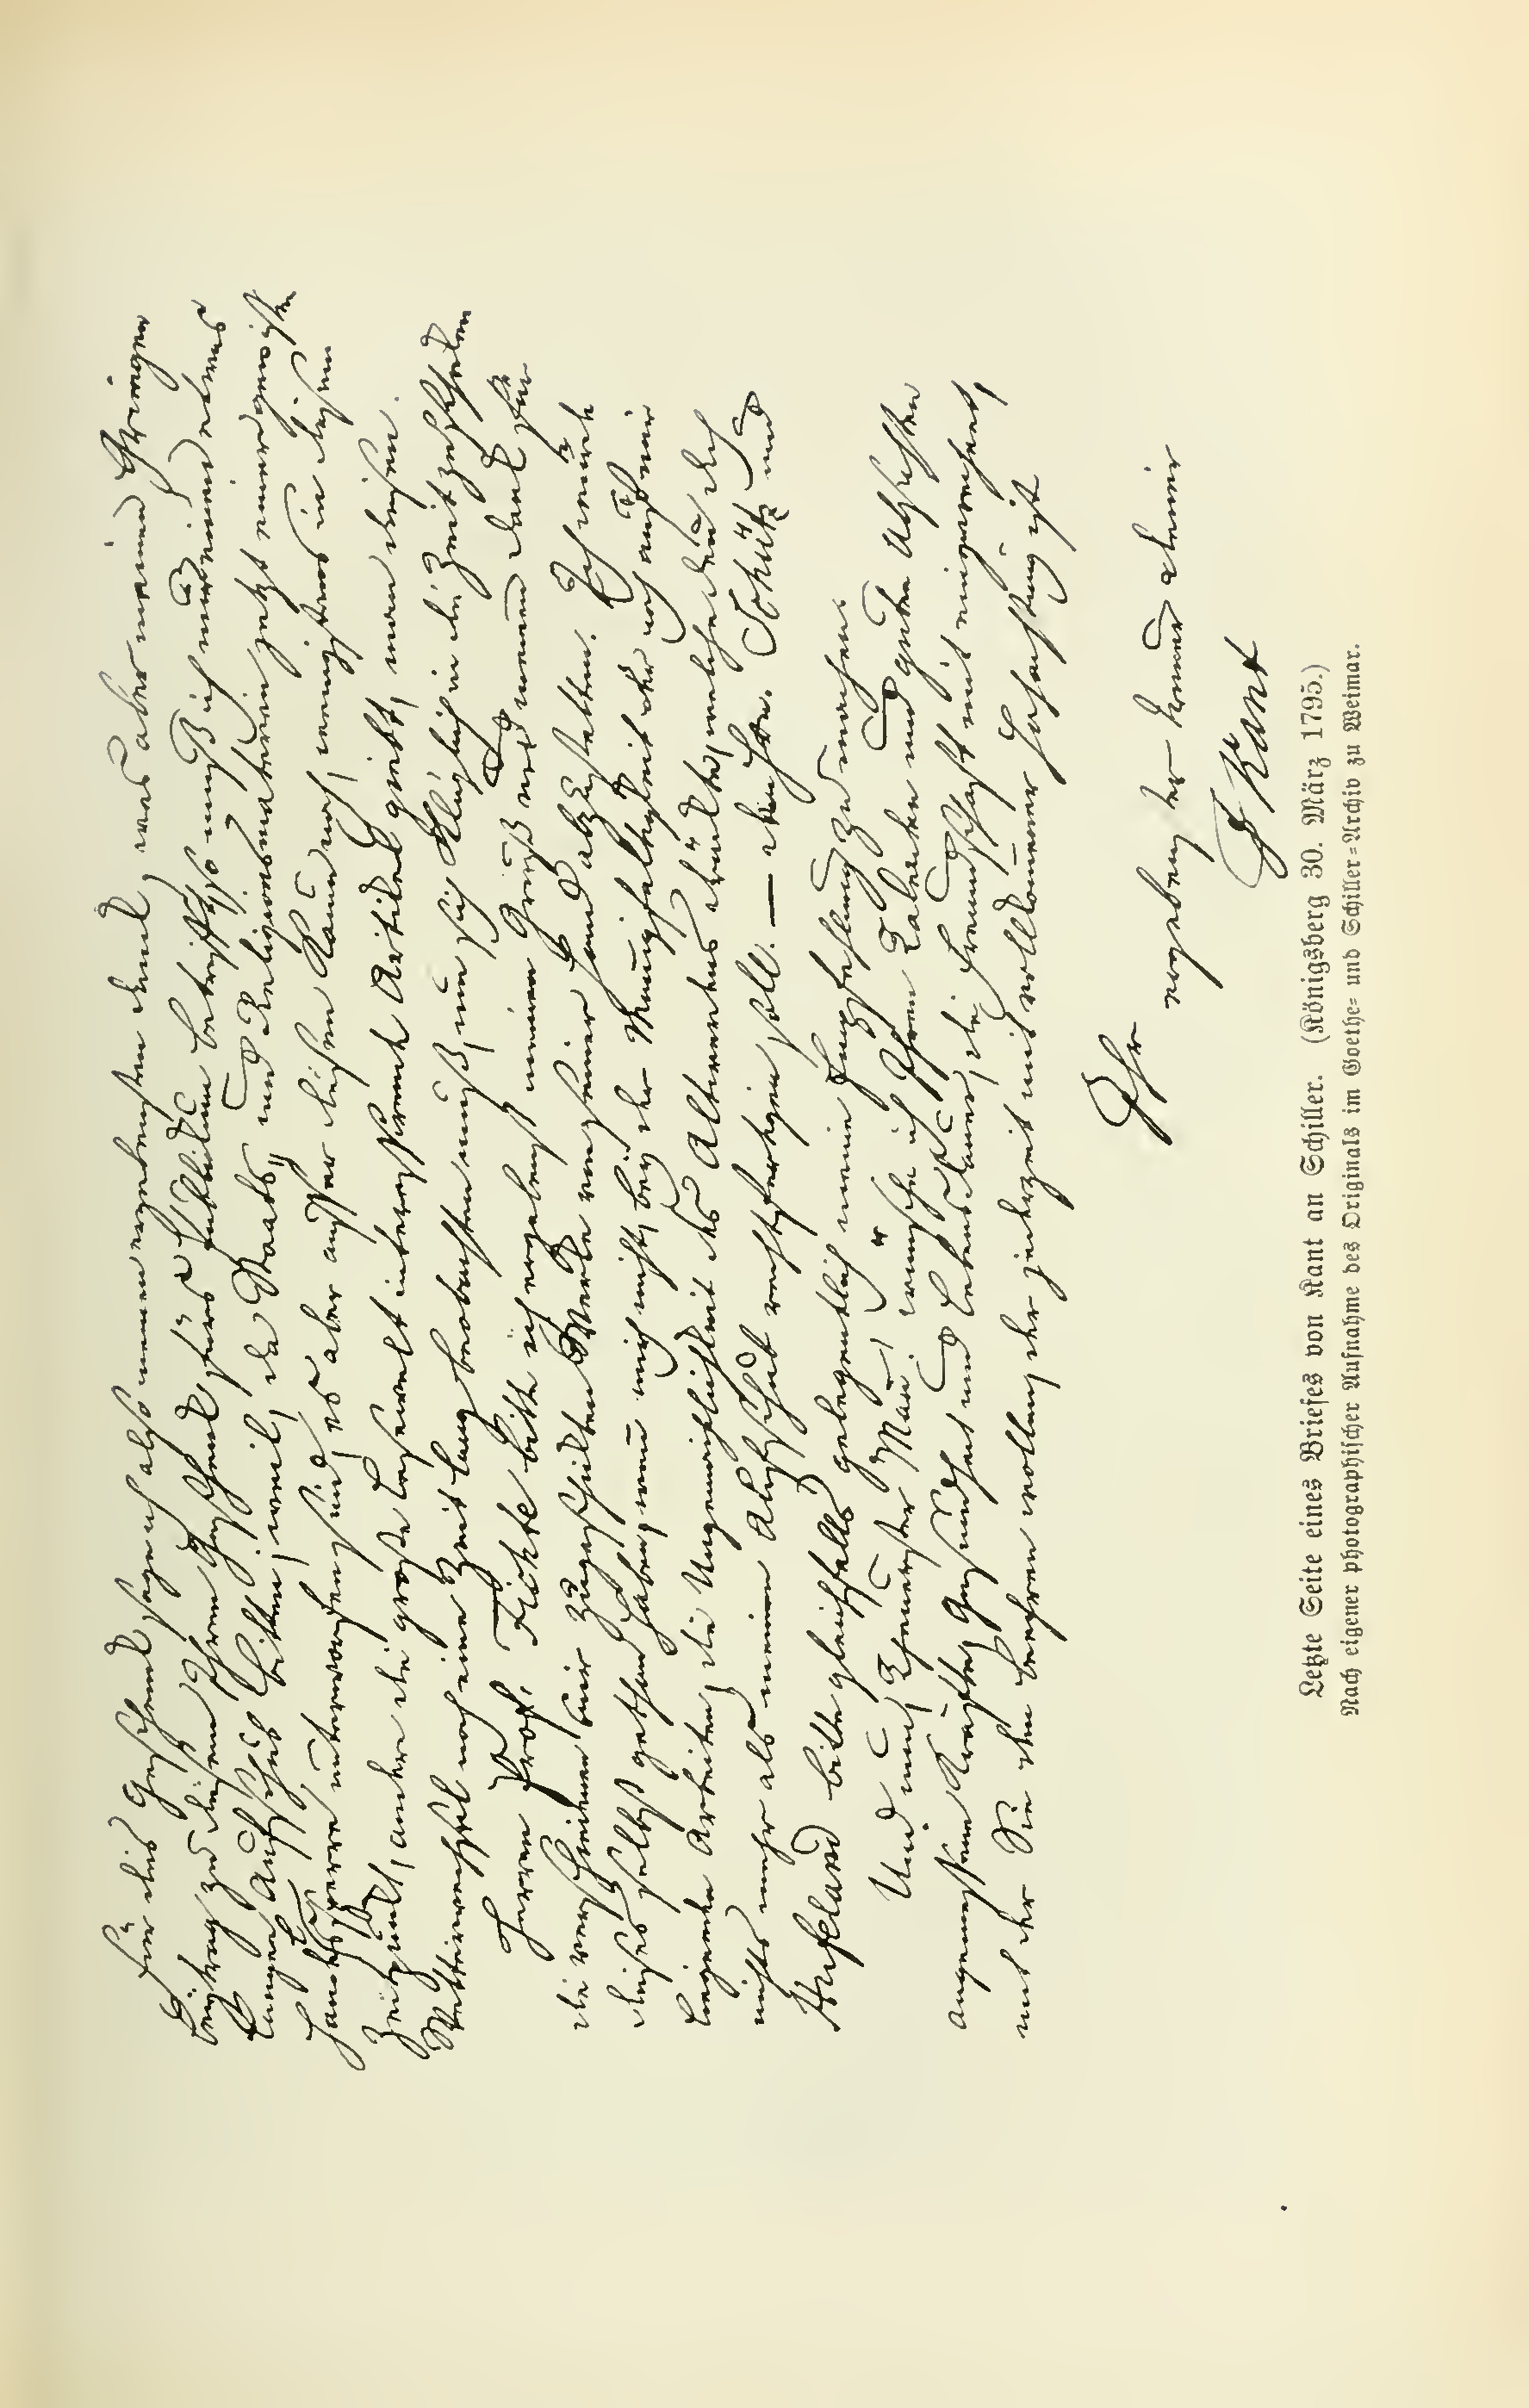 Für das Geschenk sage ich also meinen ergebensten Dank; was aber meinen Geringen
Beytrag zu diesem Ihrem Geschenk fürs Publikum betrifft, so muß ich mir einen etwas
langen Aufschub erbitten; weil, da Staats- und Religionsmaterien jetzt einer gewissen
Handelssperre unterworfen sind, es aber außer diesen kaum noch, wenigstens in diesem
Zeitpunkt, andere die große Lesewelt interessirende Artikel giebt, man diesen
Wetterwechsel noch eine Zeitlang beobachten muß, um sich klüglich in die Zeit zu schicken
Herren Prof. Fichte bitte ich ergebenst meinen Gruß und meinen Dank für
die verschiedene mir zugeschickten Werke von seiner Hand abzustatten. Ich würde
dieses selbst gethan haben, wenn mich nicht, bey der Mannigfaltigkeit der noch auf mir
liegenden Arbeiten, die Ungemächlichkeit des Altwerdens drückte, welche denn doch
nichts mehr als meinen Aufschub rechtfertigen soll. — den Hrn. Schütz und
Hufeland bitte gleichfalls gelegentlich meine Empfehlung zu machen.
Und nun, Theuerster Mañ! wünsche ich Ihren Talenten und guten Absichten
angemessene Kräfte, Gesundheit und Lebensdauer, die Freundschaft mit eingerechnet,
mit der Sie den beehren wollen, der jederzeit mit vollkom̄ener Hochachtung ist
Ihr
ergebenster treuer Diener
I Kant
Letzte Seite eines Briefes von Kant an Schiller. (Königsberg 30. März 1795.)
Nach eigener photographischer Aufnahme des Originals im Goethe- und Schiller-Archiv zu Weimar.